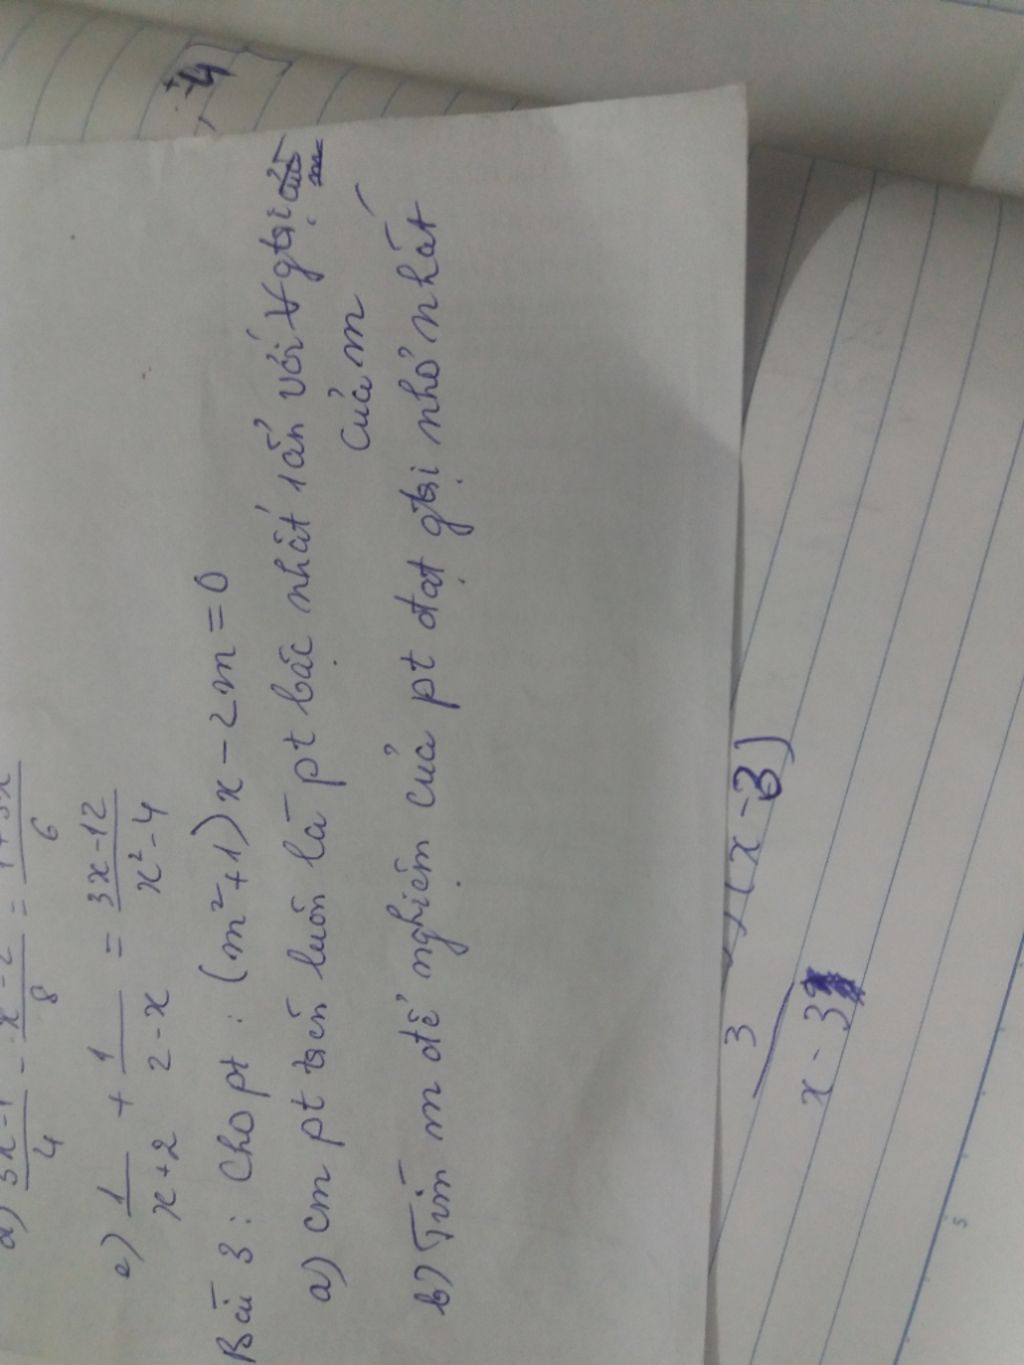 d) (3x-1)/4 - (x-2)/8 = /6
e) 1/(x+2) + 1/(2-x) = (3x-12)/(x²-4)
Bài 3: Cho pt: (m²+1)x-2m=0
a) cm pt trên luôn là pt bậc nhất 1 ẩn với ∀ gtrị
của m
b) Tìm m để nghiệm của pt đạt gtrị nhỏ nhất
3
(x-3)
x-3